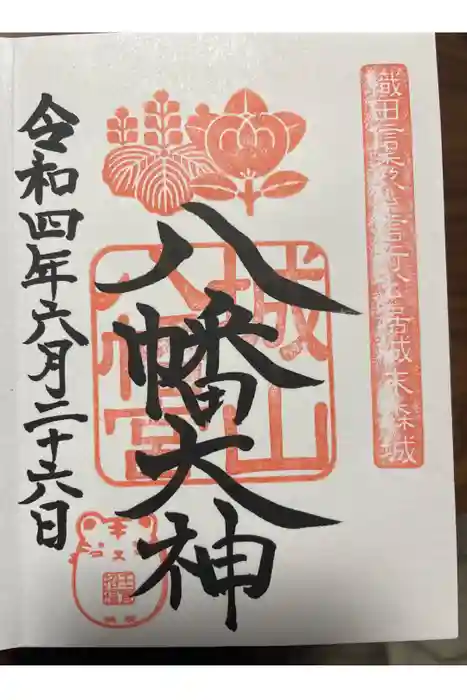 織田信秀公信行公居城末森城
八幡大神
城山
八幡宮
令和四年六月二十六日